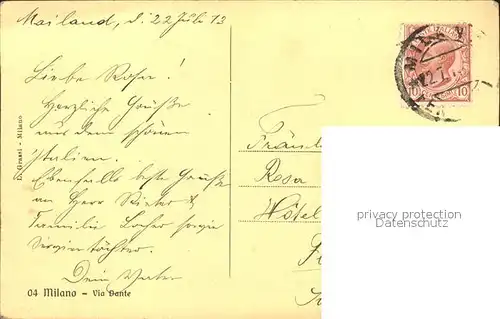 Mailand, d. 22 Juli 13
Liebe Rosa!
Herzliche Grüße
aus dem schönen
Italien.
Ebenfalls beste Grüße
an Herr &
Familie Locher sowie
Dein
04 Milano - Via Dante
D. Grassi - Milano
Fräulein
Rosa
Hôtel
MILANO
10 10
privacy protection
Datenschutz